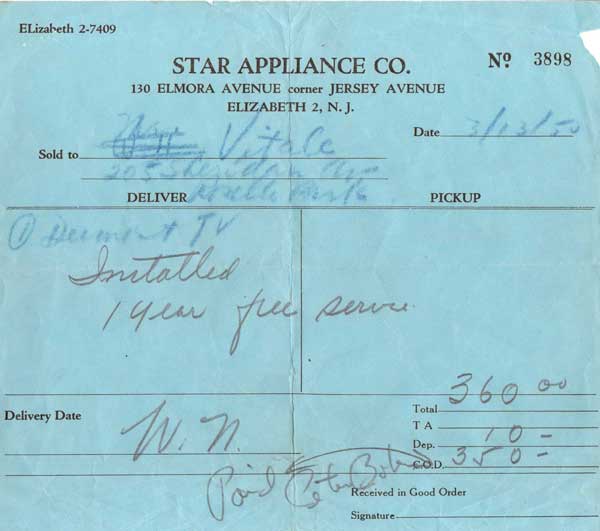 ELizabeth 2-7409
STAR APPLIANCE CO.
Nº 3898
130 ELMORA AVENUE corner JERSEY AVENUE
ELIZABETH 2, N. J.
Date 3/13/50
Sold to Vitale
205 Sheridan Ave
DELIVER
PICKUP
① Dumont TV
Installed
1 year free service
Total 360 00
Delivery Date W. N.
T A
Dep. 10 -
C.O.D. 350 -
Paid Peter
Received in Good Order
Signature